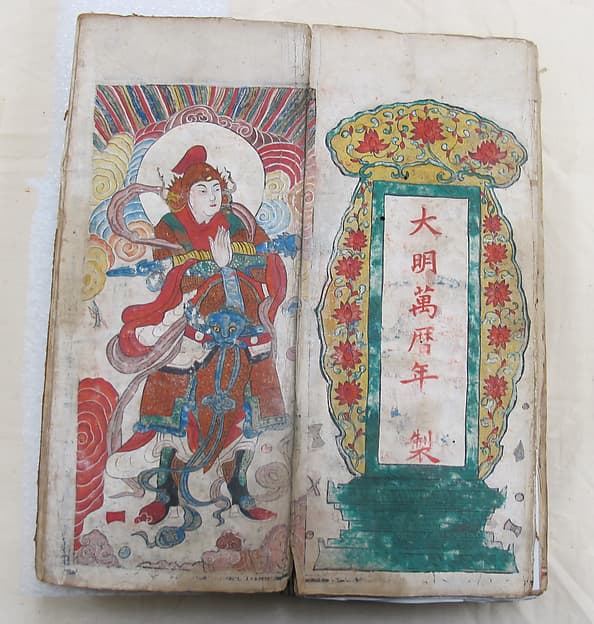 大明萬暦年製